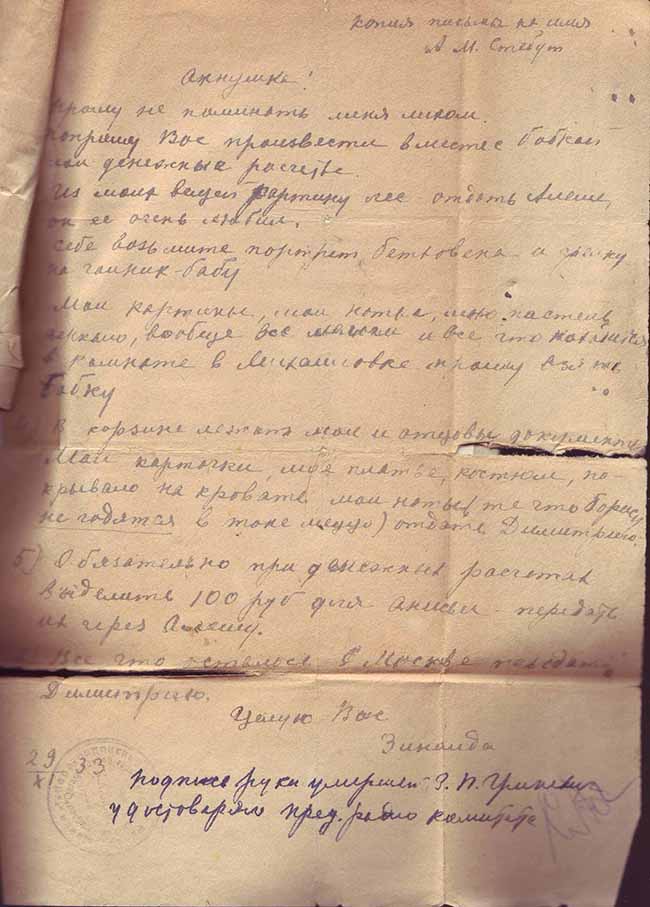 Копия письма на имя
А. М. Стебут
Аннушка!
Прошу не поминать меня лихом.
Попрошу Вас произвести вместе с бабкой
мои денежные расчеты.
Из моих вещей картину лес отдать Алеше,
он ее очень любил.
Себе возьмите портрет Бетховена и
на чайник-бабу
Мои картины, мои ноты, мою постель
зеркало, вообще все мелочи и все что находится
в комнате в Михайловке прошу взять
бабку
4) В корзине лежат мои и отцовы документы
Мои карточки, мое платье, костюм, по-
крывало на кровать мои ноты (те что Борису
не годятся в тоне меццо) отдать Димитрию.
5) Обязательно при денежных расчетах
выделить 100 руб для Анисьи - передать
их через Алешу.
Все что осталось в Москве передать
Димитрию.
Целую Вас
Зинаида
29/XI 33
Подпись руки умершей З. П.
удостоверяю пред. комитета